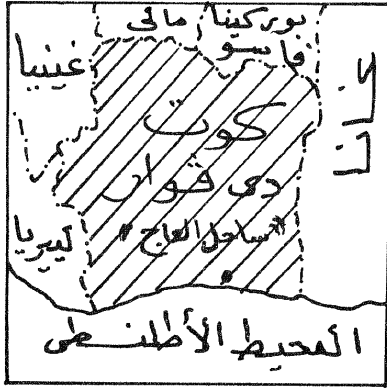 مالي
بوركينا
فاسو
غينيا
غانا
كوت
دى قوار
"ساحل العاج"
ليبريا
المحيط الأطلنطى